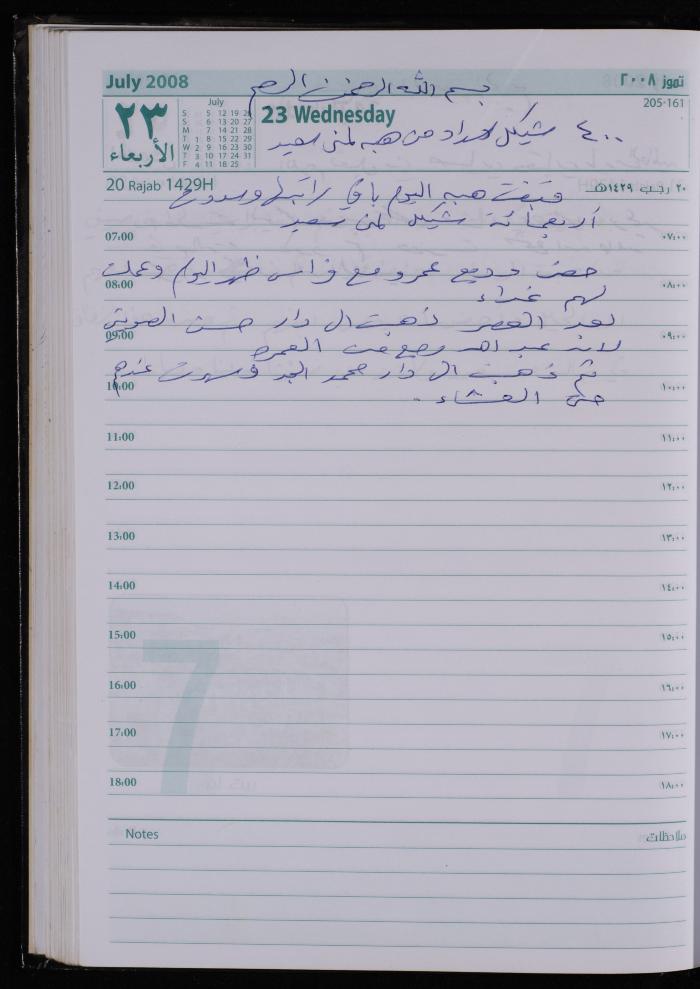 July 2008
بسم الله الرحمن الرحيم
تموز ٢٠٠٨
205-161
٢٣
الأربعاء
July
S 5 12 19 26
S 6 13 20 27
M 7 14 21 28
T 1 8 15 22 29
W 2 9 16 23 30
T 3 10 17 24 31
F 4 11 18 25
23 Wednesday
٤٠٠ شيكل سداد من هبه لمنى سعيد
20 Rajab 1429H
٢٠ رجب ١٤٢٩هـ
قبضت هبه اليوم باقي راتبها وسددت
أربعمائة شيكل لمنى سعيد
07:00 ٠٧:٠٠
حضر وديع عمرو مع فراس ظهر اليوم وعملت
08:00 ٠٨:٠٠
لهم غداء
بعد العصر ذهبت الى دار حسن
09:00 ٠٩:٠٠
لانه عبد الله رجع من العمره
ثم ذهبت الى دار محمد الجد وسهرت عندهم
10:00 ١٠:٠٠
حتى العشاء .
11:00 ١١:٠٠
12:00 ١٢:٠٠
13:00 ١٣:٠٠
14:00 ١٤:٠٠
15:00 ١٥:٠٠
16:00 ١٦:٠٠
17:00 ١٧:٠٠
18:00 ١٨:٠٠
7
Notes
ملاحظات